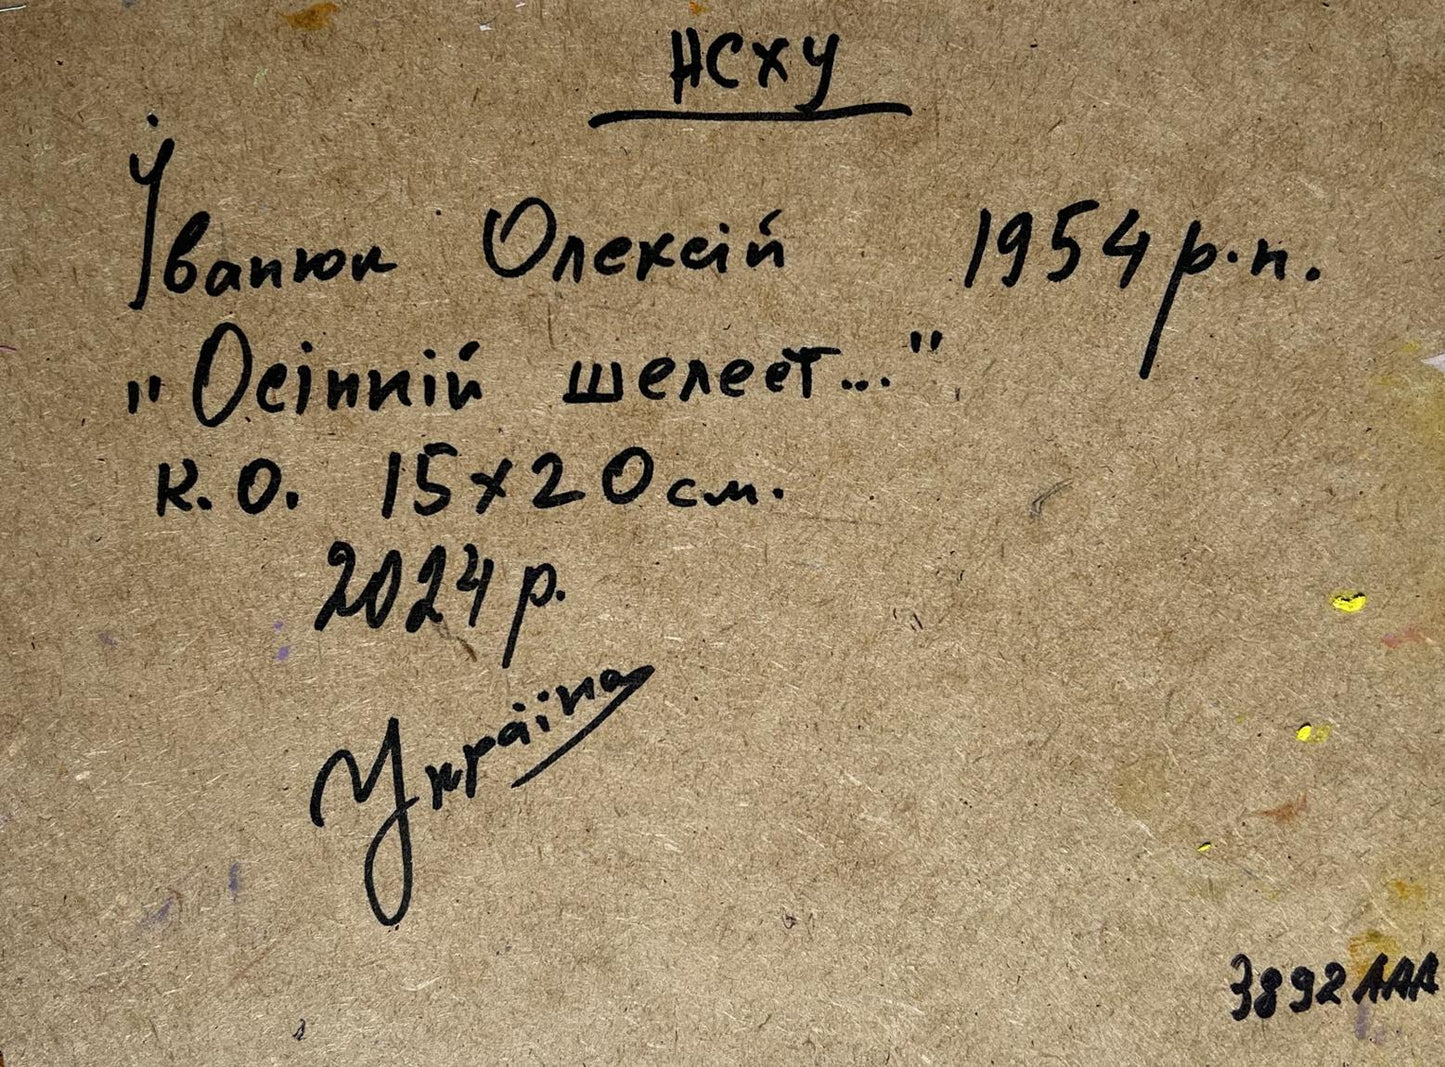 НСХУ
Іванюк Олексій 1954 р.н.
"Осінній шелест..."
К.О. 15х20см.
2024 р.
Україна
3892ААА